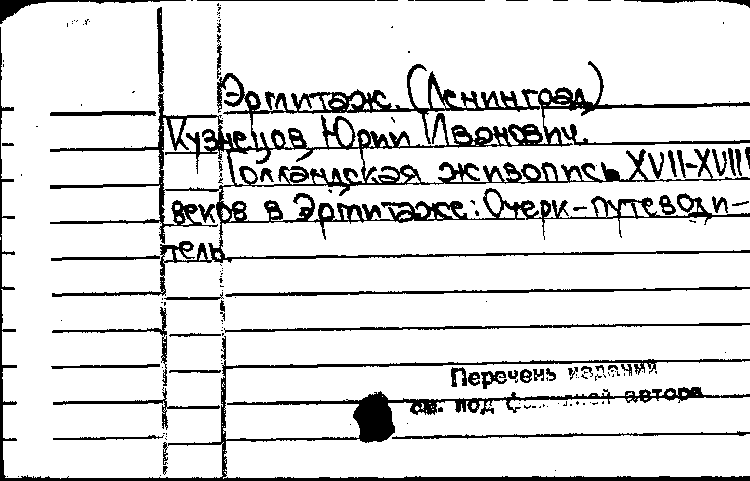 Эрмитаж. (Ленинград)
Кузнецов Юрий Иванович.
Голландская живопись XVII-XVIII
веков в Эрмитаже: Очерк-путеводи-
тель.
Перечень изданий
см. под фамилией автора